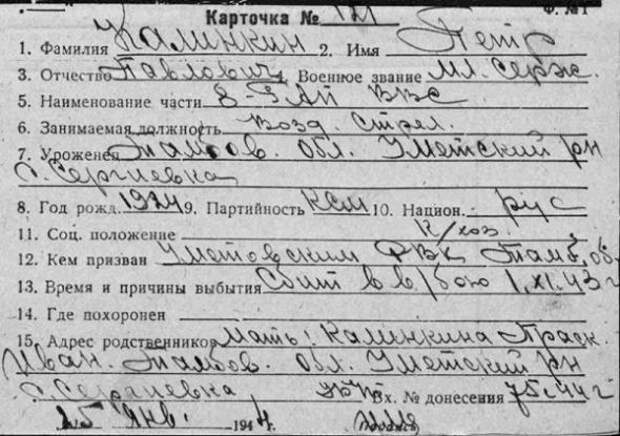 Карточка № 121 Ф. №1
1. Фамилия Калинкин 2. Имя Петр
3. Отчество Павлович 4. Военное звание Мл. Серж.
5. Наименование части 8-й АП ВВС
6. Занимаемая должность Возд. Стрел.
7. Уроженец Тамбов. обл. Уметский рн
с. Сергиевка
8. Год рожд. 1924 9. Партийность КСМ 10. Национ. рус
11. Соц. положение к/хоз
12. Кем призван Уметовским РВК Тамб. об.
13. Время и причины выбытия Сбит в в/бою 1.XI.43 г
14. Где похоронен
15. Адрес родственников Мать: Калинкина Праск.
Иван. Тамбов. обл. Уметский рн
с. Сергиевка Вх. № донесения 75.44 г
25 янв. 1944 г.